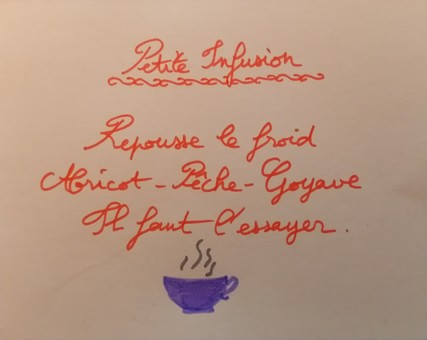 Petite Infusion
Repousse le froid
Abricot - Pêche - Goyave
Il faut l'essayer.